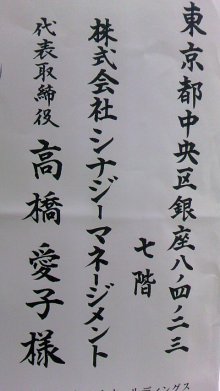 東京都中央区銀座八ノ四ノ二三
七階
株式会社シナジーマネージメント
代表取締役 高橋愛子様
ールディングス